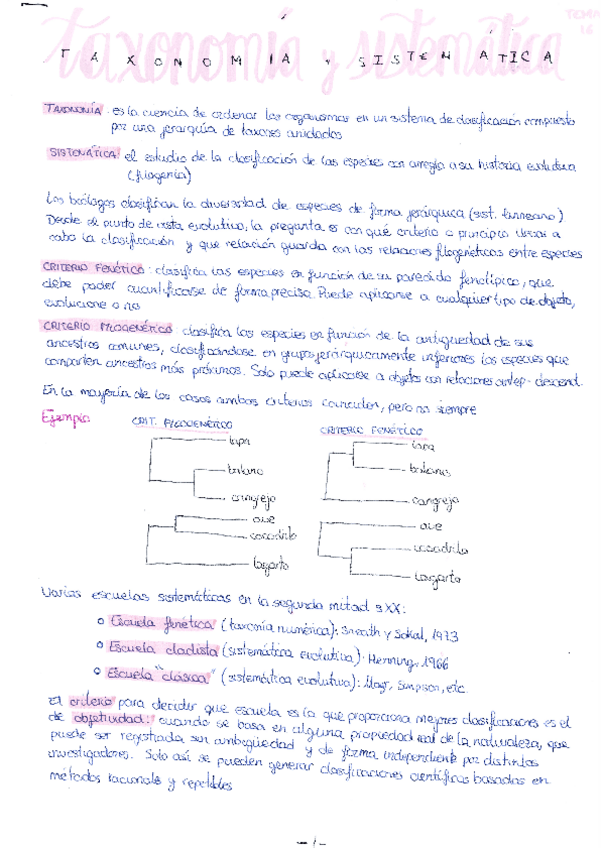 taxonomía y sistemática
TEMA 16
TAXONOMIA Y SISTEMÁTICA
TAXONOMÍA: es la ciencia de ordenar los organismos en un sistema de clasificación compuesto
por una jerarquía de taxones anidados
SISTEMÁTICA: el estudio de la clasificación de las especies con arreglo a su historia evolutiva
(filogenia)
Los biólogos clasifican la diversidad de especies de forma jerárquica (sist. linneano)
Desde el punto de vista evolutivo, la pregunta es con qué criterio o principio llevar a
cabo la clasificación y que relación guarda con las relaciones filogenéticas entre especies
CRITERIO FENÉTICO: clasifica las especies en función de su parecido fenotípico, que
debe poder cuantificarse de forma precisa. Puede aplicarse a cualquier tipo de objeto,
evolucione o no
CRITERIO FILOGENÉTICO clasifica las especies en función de la antigüedad de sus
ancestros comunes, clasificándose en grupos jerárquicamente inferiores las especies que
comparten ancestros más próximos. Solo puede aplicarse a objetos con relaciones antep-descend.
En la mayoría de los casos ambos criterios coinciden, pero no siempre
Ejemplo:
CRIT. FILOGENÉTICO
CRITERIO FENÉTICO
lapa
balano
cangrejo
ave
cocodrilo
lagarto
lapa
balanus
cangrejo
ave
cocodrilo
lagarto
Varias escuelas sistemáticas en la segunda mitad sXX:
Escuela fenética (taxonomía numérica): Sneath y Sokal, 1973
Escuela cladista (sistemática evolutiva): Henning, 1966
Escuela "clásica" (sistemática evolutiva): Mayr, Simpson, etc.
El criterio para decidir que escuela es la que proporciona mejores clasificaciones es el
de objetividad: cuando se basa en alguna propiedad real de la naturaleza, que
puede ser registrada sin ambigüedad y de forma independiente por distintos
investigadores. Solo así se pueden generar clasificaciones científicas basadas en
métodos racionales y repetibles
-1-